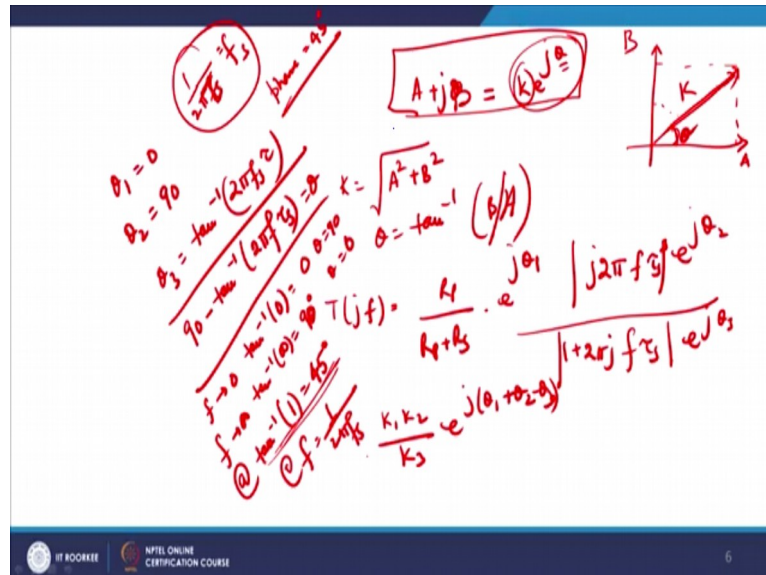 1/2πfs = fs
phase = 45°
A + jB = (k)e^jθ
B
K
θ
A
θ1 = 0
θ2 = 90
θ3 = tan^-1(2πfτ)
90 - tan^-1(2πfτs) = θ
K = √A²+B²
θ = tan^-1 (B/A)
f→0 tan^-1(0) = 0 θ=90
f→∞ tan^-1(∞) = 90° θ=0
@ tan^-1(1) = 45°
@ f = 1/2πfs
T(jf) = Rp/Rp+Rs · e^jθ1 |j2πfτs| e^jθ2 / |1+2πjfτs| e^jθ3
K1K2/K3 e^j(θ1+θ2-θ3)
IIT ROORKEE
NPTEL ONLINE
CERTIFICATION COURSE
6